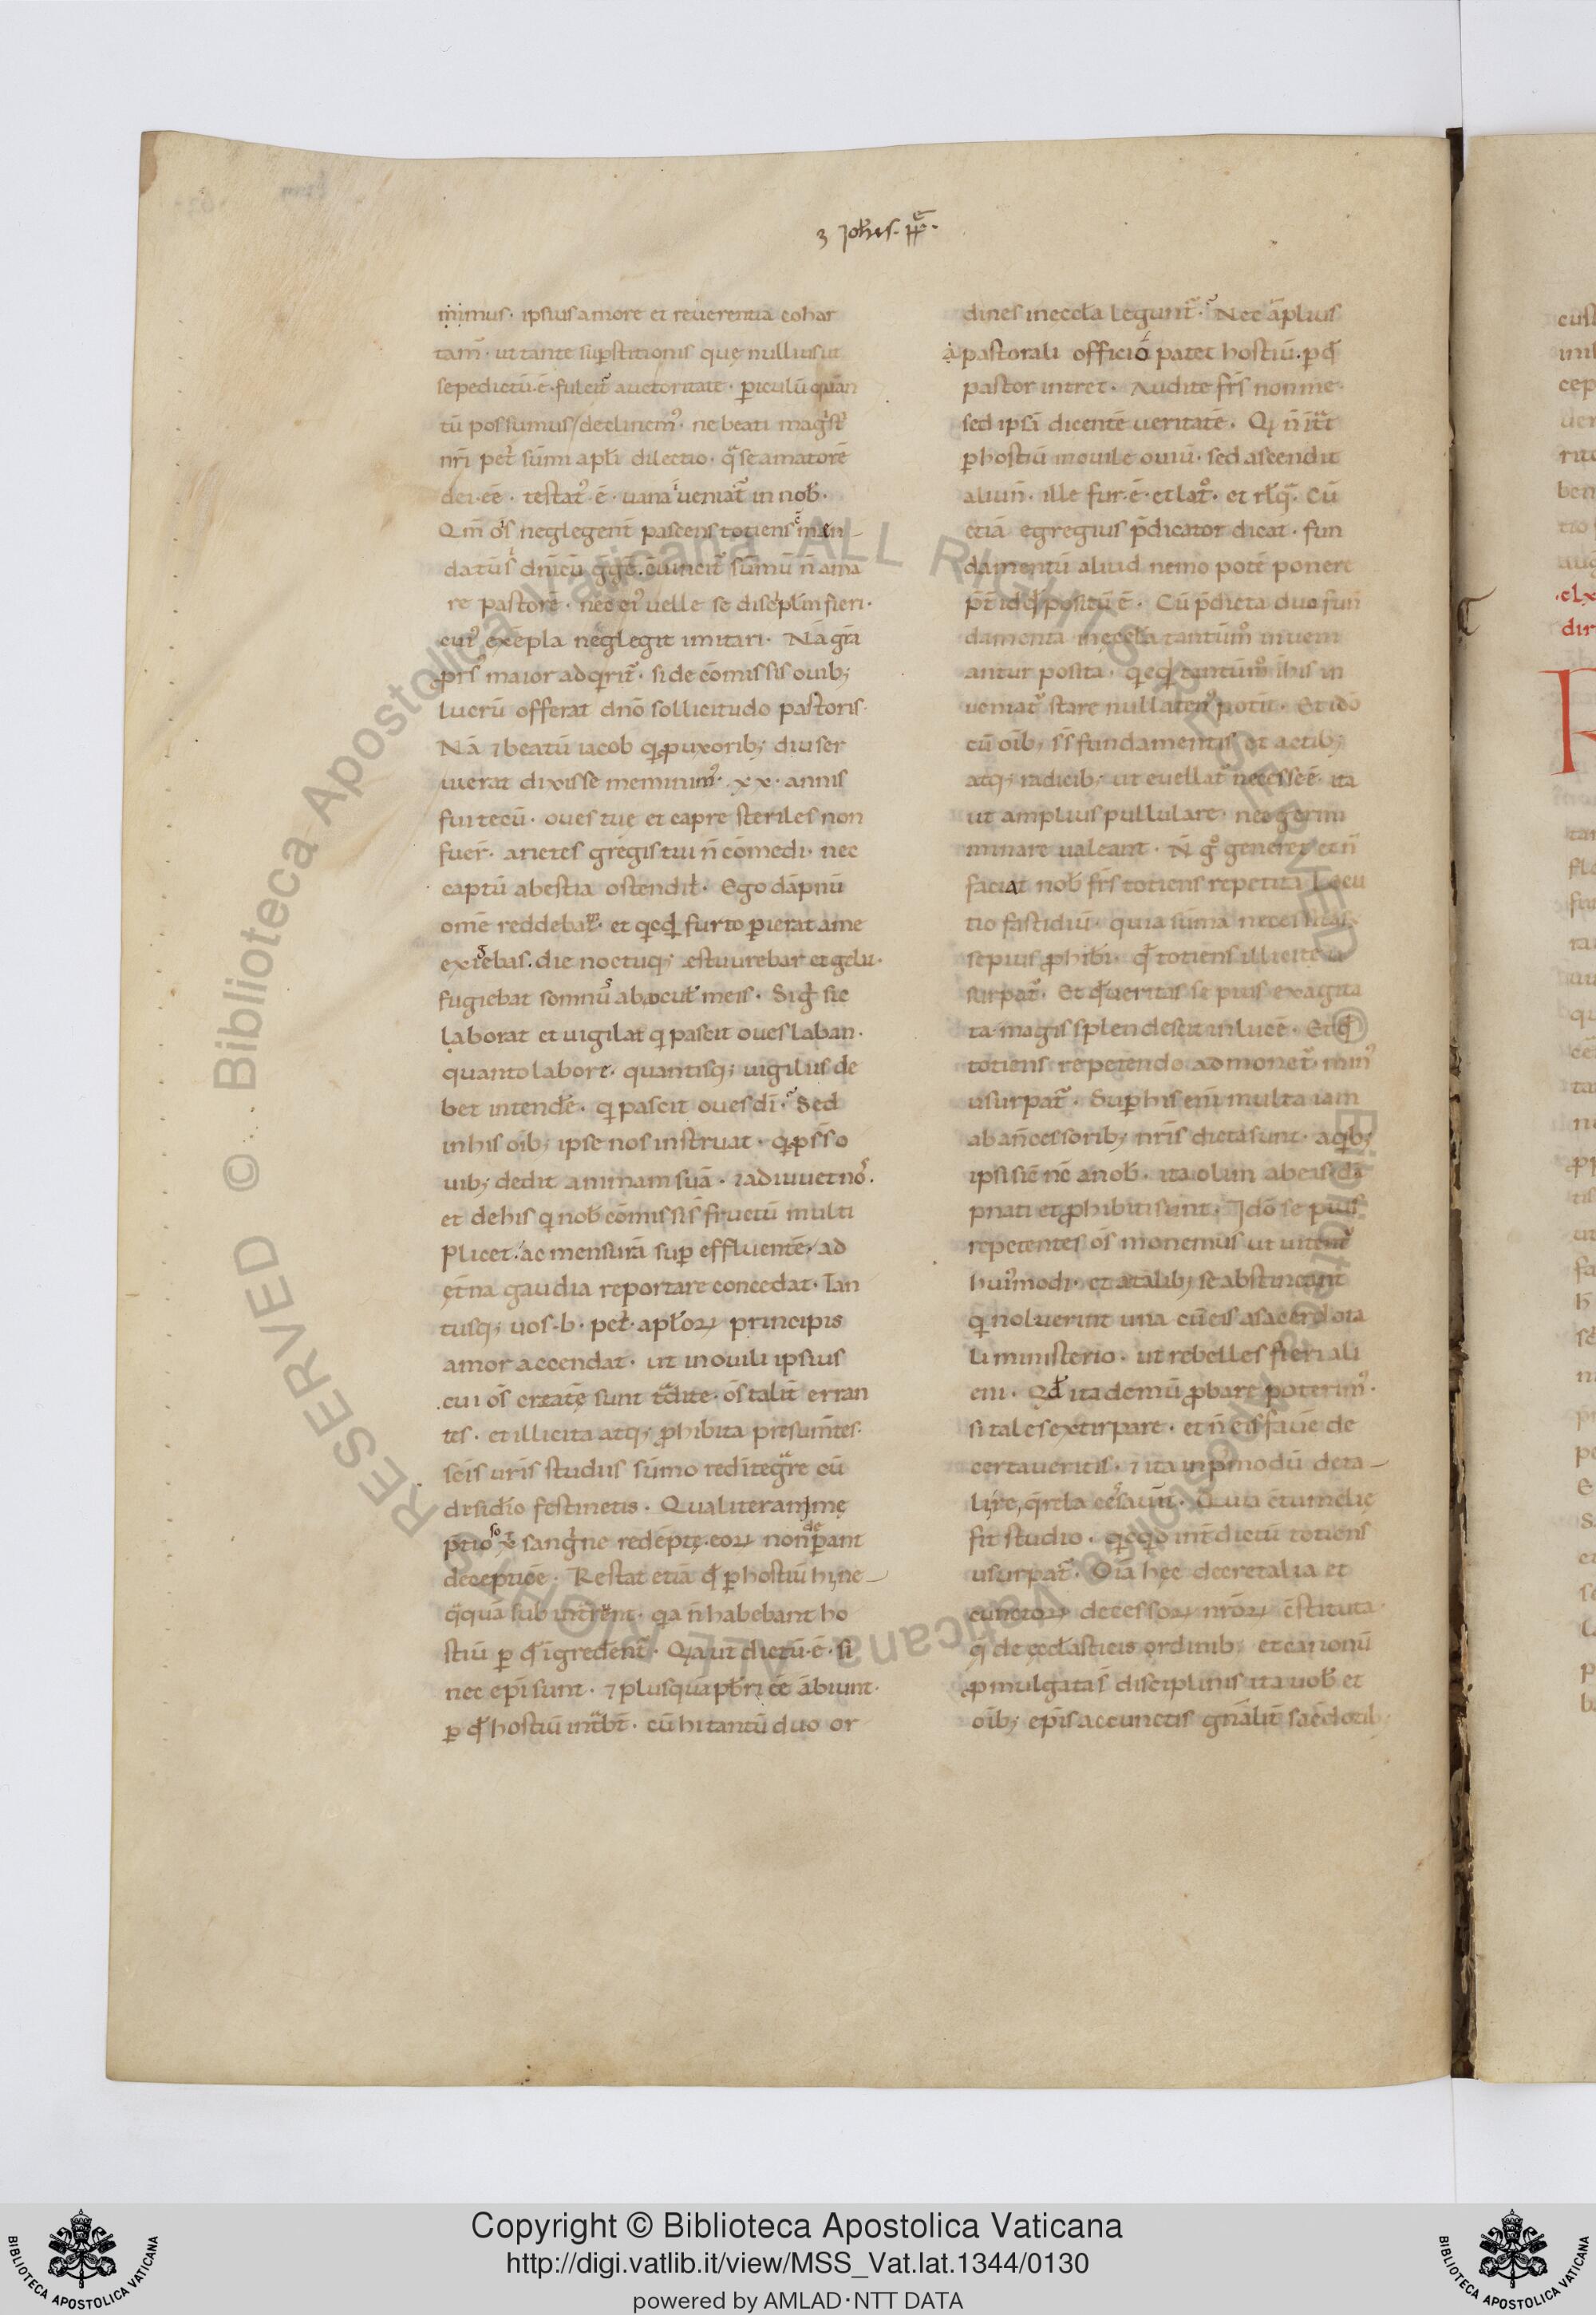 3 Joh̄es. p̄p̄.
mimus. ipsius amore et reuerentia cohar
tam̄. ut tante sup̄stitionis quę nullius ut
sepe dictū. ē. fulcit̄ auctoritate. p̄iculū quan
tū possumus / declinem᷒. ne beati magist̄
nr̄i pet̄ sūmi apl̄i dilectio. q̄ se amatorē
dei. eē. testat᷒. ē. uana ueniat̄ in nob̄.
Qm̄ os̄ neglegent̄ pascens totiens man-
re pastorē. nec ei᷒ uelle se discipl̄m fieri.
cui᷒ exēpla neglegit imitari. Nā gr̄a
prs̄ maior adq̄rit̄. si de cōmissis ouib;
lucrū offerat dn̄o sollicitudo pastoris.
Nā ⁊ beatū iacob q̄ p̄ uxorib; diu ser
uierat dixisse meminim᷒. xx. annis
fui tecū. oues tue et capre steriles non
fuer̄. arietes gregis tui n̄ cōmedi. nec
captū a bestia ostendit̄. Ego dāpnū
om̄e reddeba. et q̄cq̄d furto p̄ierat a me
exiebas. die noctuq; estu urebar et gelu.
fugiebat somnus ab ocul̄ meis. Si gͥ sic
laborat et uigilat q̄ pascit oues laban.
quanto labore. quantisq; uigiliis de
bet intendē. q̄ pascit oues dī. Sed
in his oīb; ipse nos instruat. q̄ p̄ ss̄ o
uib; dedit animam suā. ⁊ adiuuet nos.
et de his q̄ nob̄ cōmissis fructū multi
plicet. ac mensurā sup̄ effluentē / ad
et̄na gaudia reportare concedat. Tan
tusq; uos. b. pet̄. apl̄oꝝ principis
amor accendat. ut in ouili ipsius
cui os̄ creatę sunt t̄dite. os̄ talit̄ erran
tes. et illicita atq; p̄hibita presum̄tes.
sc̄is ur̄is studiis sūmo reditegr̄re cū
dr̄sidio festinetis. Qualiter animę
p̄tioso x̄ sangͥne redēptę. eoꝝ non dep̄eant
deceptiōe. Restat etiā q̄d p̄ hostiū hi ne
q̄quā sub intrent. q̄a n̄ habebant ho
stiū p̄ q̄d īgredent̄. Q̄a ut dictū. ē. si
nec ep̄i sunt. ⁊ plusquā pb̄ri eē ābiunt.
p̄ q̄d hostiū int̄bt̄. cū hi tantū duo or
dines in eccl̄a legunt̄. Nec āplius
a pastorali officio patet hostiū. p̄ q̄d
pastor intret. Audite fr̄s non me
sed ipsā dicentē ueritatē. Q̄ n̄ īt̄t
p̄ hostiū in ouile ouiū. sed ascendit
aliun̄. ille fur. ē. et lat᷒. et rl̄q̄. Cū
etiā egregius p̄dicator dicat. fun
damentū aliud nemo potē ponere
p̄t id q̄d positū ē. Cū p̄dicta duo fun
damenta in eccl̄a tantūm᷒ inueni
antur posita. q̄cq̄d tantūm᷒ ihis in
ueniat̄ stare nullaten᷒ potit. Et idō
cū oīb; ss̄ fundamentis et actib;
atq; radicib; ut euellat̄ necesse ē. ita
ut amplius pullulare. nec germi
minare ualeant. N̄ gͦ generet et n̄
faciat nob̄ fr̄s totiens repetita Locu
tio fastidiū. quia sūma necessitas
sepius p̄hib̄i. q̄d totiens illicite u
surpat̄. Et q̄d ueritas sepius exagita
ta magis splendescit in lucē. Et q̄d
totiens repetendo admonet̄. min᷒
usurpat̄. Sup̄ his enī multa iam
ab an̄cessorib; nr̄is dicta sunt. a q̄b;
ipsi sic nē a nob̄. ita olim ab eis dā
pnati et p̄hibiti sunt. Idō sepius
repetentes os̄ monemus ut uitent
hui᷒modi. et a talib; se abstineant
q̄ noluerint una cū eis a sacerdota
li ministerio. ut rebelles fieri ali
eni. Qd̄ ita demū p̄bare poterim᷒.
si tales extirpare. et n̄ eis fauē de
certaueritis. ⁊ ita in p̄modū de ta-
fit studio. q̄cq̄d int̄dictū totiens
usurpat̄. Oīa hęc decretalia et
cunctoꝝ decessoꝝ nr̄oꝝ cōstituta
q̄ de eccl̄asticis ordinib; et canonū
p̄mulgata s̄ disciplinis ita uob̄ et
oīb; ep̄is ac cunctis gn̄alit̄ sac̄dotib;
Copyright © Biblioteca Apostolica Vaticana
http://digi.vatlib.it/view/MSS_Vat.lat.1344/0130
powered by AMLAD·NTT DATA